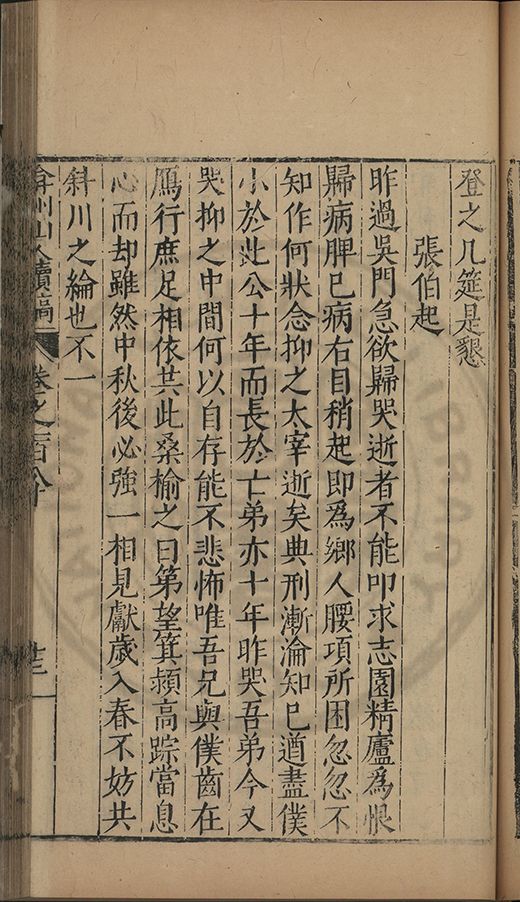 登之几筵是懇
張伯起
昨過吳門急欲歸哭逝者不能叩求志園精廬為恨
歸病脾已病右目稍起即為鄉人腰項所困忽忽不
知作何狀念抑之太宰逝矣典刑漸淪知已遒盡僕
小於此公十年而長於亡弟亦十年昨哭吾弟今又
哭抑之中間何以自存能不悲怖唯吾兄與僕齒在
鴈行庶足相依其此桑榆之日第望箕潁高踪當息
心而却雖然中秋後必強一相見獻歲入春不妨共
斜川之綸也不一
弇州山人續稿 卷之一百八十 廿三